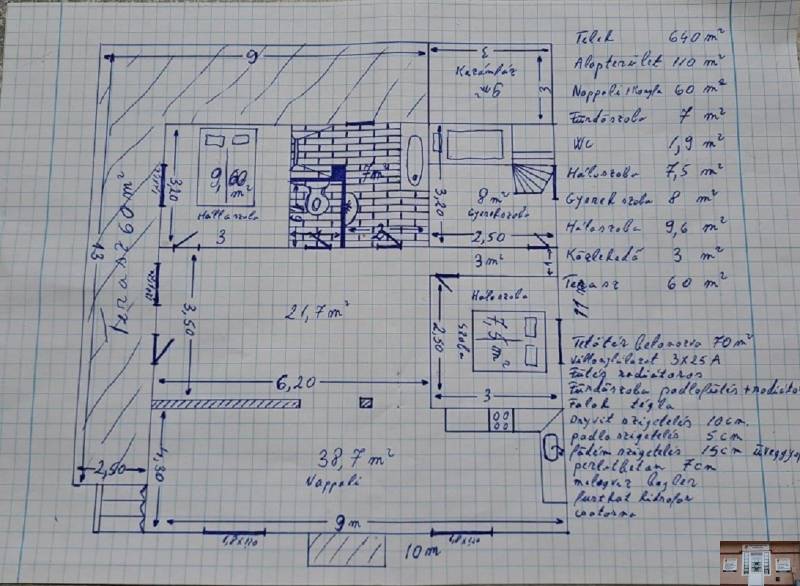 9
3
Kazánház
9 m²
3
Telek 640 m²
Alapterület 110 m²
Nappali+konyha 60 m²
Fürdőszoba 7 m²
Wc 1,9 m²
Hálószoba 7,5 m²
Gyerek szoba 8 m²
Hálószoba 9,6 m²
Közlekedő 3 m²
Terasz 60 m²
9,60 m²
3,20
Hálószoba
3
7 m²
1,9
2
8 m²
Gyerekszoba
3,20
2,50
3 m²
1
13
Terasz 60 m²
21,7 m²
3,50
6,20
Hálószoba
szoba
7,5 m²
2,50
3
11 m
Tetőtér betonozva 70 m²
Villanyhálózat 3x25 A
Fűtés radiátoros
Fürdőszoba padlófűtés + radiátor
Falak tégla
Dryvit szigetelés 10 cm.
padló szigetelés 5 cm
födém szigetelés 15 cm
perlitbeton 7 cm
melegvíz bojler
furtkút hidrofor
csatorna
2,50
4,30
38,7 m²
Nappali
9 m
10 m